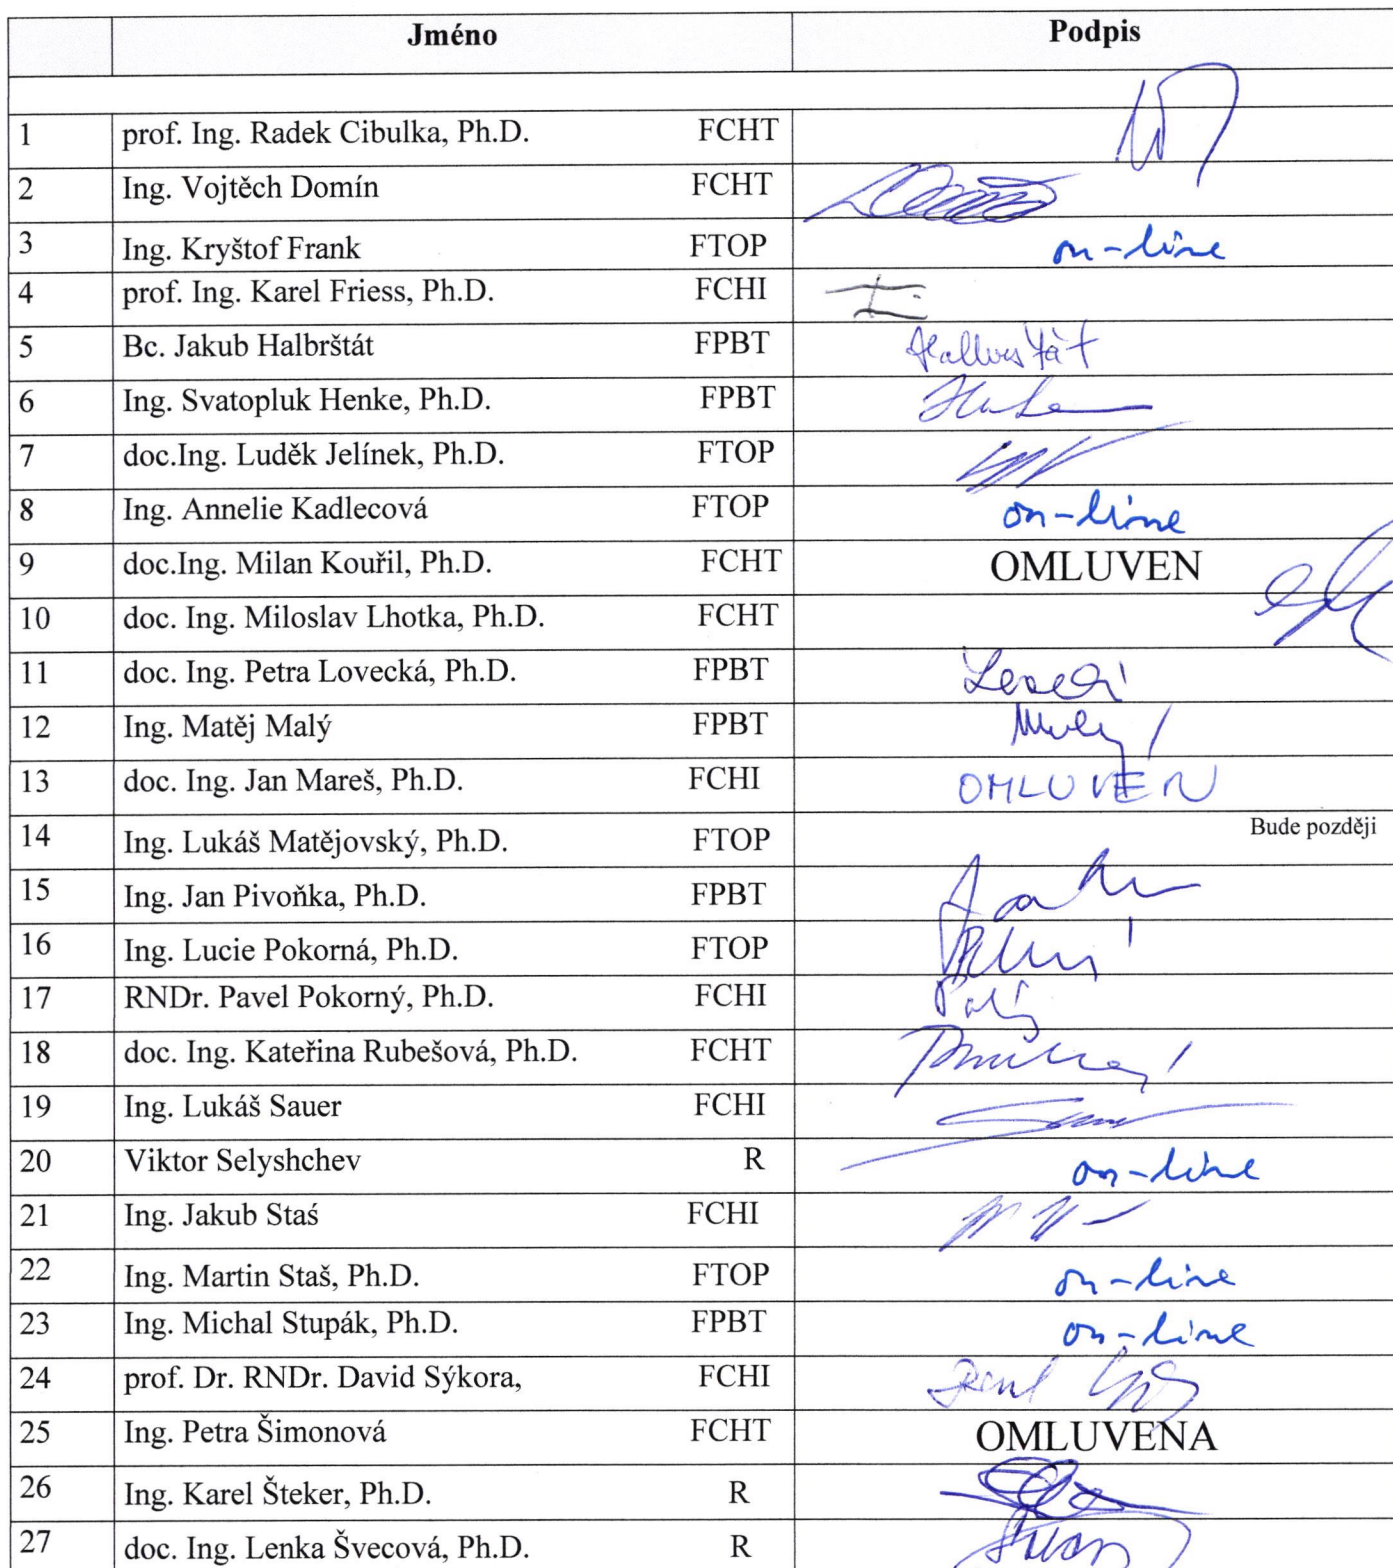 Jméno Podpis
1 prof. Ing. Radek Cibulka, Ph.D. FCHT
2 Ing. Vojtěch Domín FCHT
3 Ing. Kryštof Frank FTOP on-line
4 prof. Ing. Karel Friess, Ph.D. FCHI
5 Bc. Jakub Halbrštát FPBT
6 Ing. Svatopluk Henke, Ph.D. FPBT
7 doc.Ing. Luděk Jelínek, Ph.D. FTOP
8 Ing. Annelie Kadlecová FTOP on-line
9 doc.Ing. Milan Kouřil, Ph.D. FCHT OMLUVEN
10 doc. Ing. Miloslav Lhotka, Ph.D. FCHT
11 doc. Ing. Petra Lovecká, Ph.D. FPBT
12 Ing. Matěj Malý FPBT
13 doc. Ing. Jan Mareš, Ph.D. FCHI OMLUVEN
14 Ing. Lukáš Matějovský, Ph.D. FTOP Bude později
15 Ing. Jan Pivoňka, Ph.D. FPBT
16 Ing. Lucie Pokorná, Ph.D. FTOP
17 RNDr. Pavel Pokorný, Ph.D. FCHI
18 doc. Ing. Kateřina Rubešová, Ph.D. FCHT
19 Ing. Lukáš Sauer FCHI
20 Viktor Selyshchev R on-line
21 Ing. Jakub Staś FCHI
22 Ing. Martin Staš, Ph.D. FTOP on-line
23 Ing. Michal Stupák, Ph.D. FPBT on-line
24 prof. Dr. RNDr. David Sýkora, FCHI
25 Ing. Petra Šimonová FCHT OMLUVENA
26 Ing. Karel Šteker, Ph.D. R
27 doc. Ing. Lenka Švecová, Ph.D. R